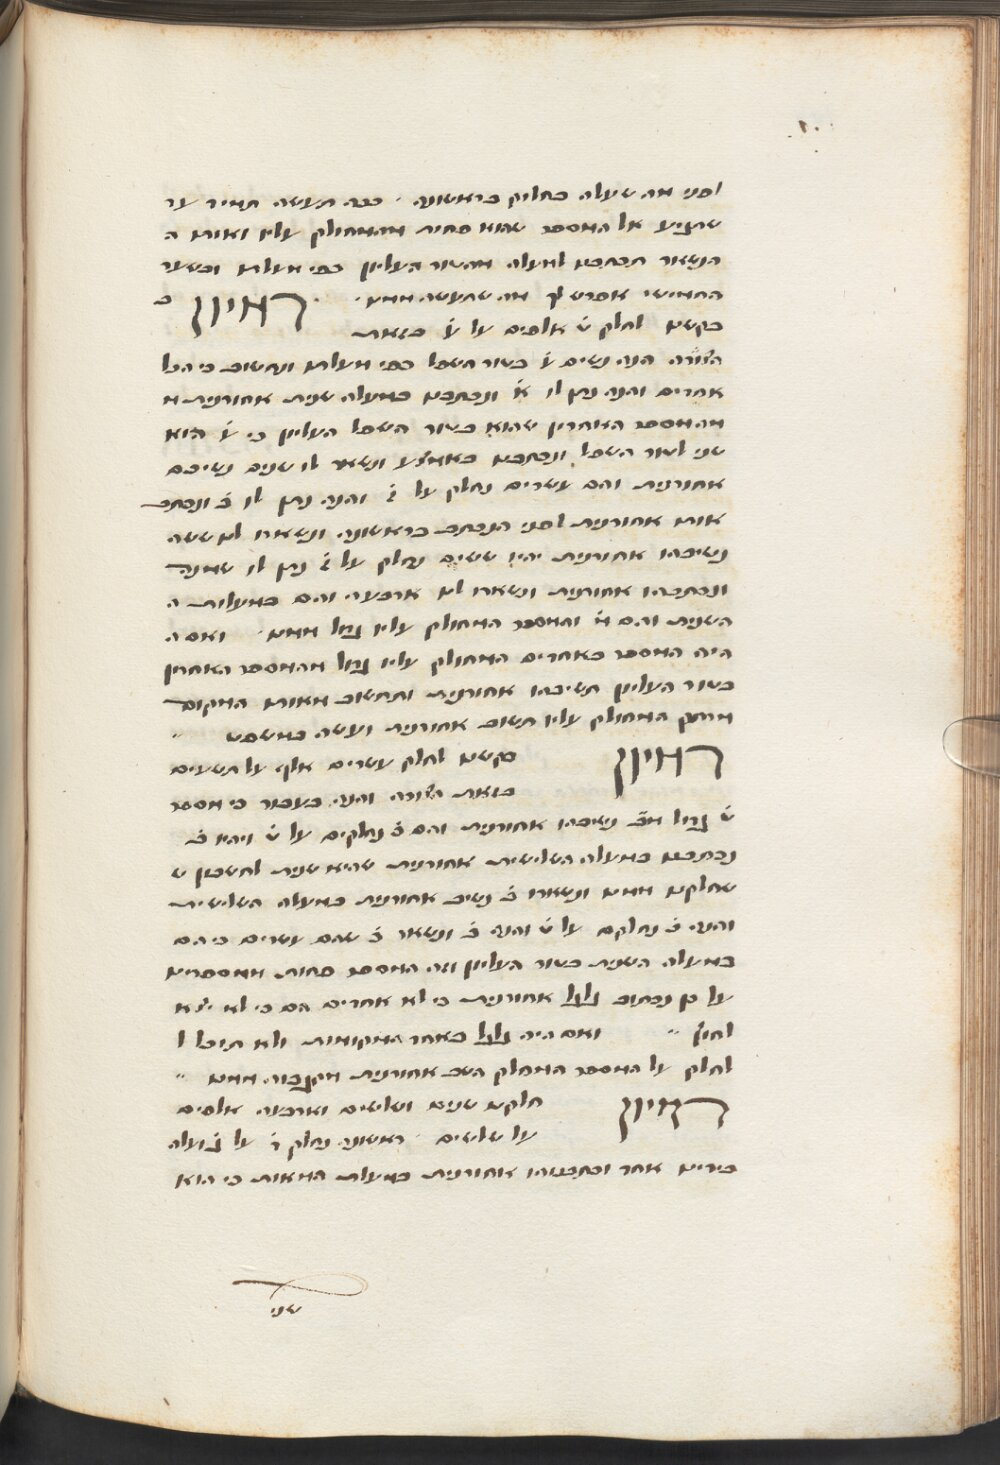 לפני מה שעלה בחלוק בראשונה . ככה תעשה תמיד עד
שתגיע אל המספר שהוא פחות מהמחולק עליו ואות ה
הנשאר תכתבם למעלה מהטור העליון כפי מעלתו ובשער
החמישי אפרש לך מה שתעשה ממנו . דמיון ב
בקשנו לחלק ט אלפים על ע בזאת
הצורה הנה נשים ע בטור השפל כפי מעלתו ונחשוב כי הכל
אחדים והנה נתן לו א ונכתבנו במעלה שנית אחורנית מ
מהמספר האחרון שהוא בטור השפל העליון כי ע הוא
שני לטור השפל ונכתבנו באמצע ונשאר לו שנים נשיבם
אחורנית והם עשרים נחלק על ז והנה נתן לו ב ונכתב
אותו אחורנית לפני הנכתב בראשונה ונשארו לנו ששה
נשיבהו אחורנית יהיו ששים נחלק על ז נתן לו שמנה
ונכתבהו אחורנית ונשארו לנו ארבעה והם במעלות ה
השנית והם מ והמספר המחולק עליו גדול ממנו . ואם ה
היה המספר באחדים המחולק עליו גדול מהמספר האחרון
בטור העליון תשיבהו אחורנית ותחשוב מאותו המקום
מרחק המחולק עליו תשוב אחורנית ועשה כמשפט "
דמיון בקשנו לחלק עשרים אלף על תשעים
בזאת הצורה והנה בעבור כי מספר
ט גדול מב נשיבהו אחורנית והם כ נחלקים על ט ויהיו ב
נכתבנו במעלה השלישית אחורנית שהיא שנית לחשבון ט
שחלקנו ממנו ונשארו ב נשיב אחורנית במעלה השלישית
והנה כ נחלקם על ט והנה ב ונשאר ב שהם עשרים כי הם
במעלה השנית בטור העליון וזה המספר פחות ממספרים
על כן נכתוב גלגל אחורנית כי לא אחדים הם כי לא יצא
לחוץ " ואם היה גלגל באחד המקומות ולא תוכל ל
לחלק על המספר המחלק השב אחורנית מקגבוה ממנו "
דמיון חלקנו שנים ושלשים וארבעה אלפים
על שלשים . ראשונה נחלק ג על ג ועלה
בידינו אחד וכתבנוהו אחורנית במעלת המאות כי הוא
שני